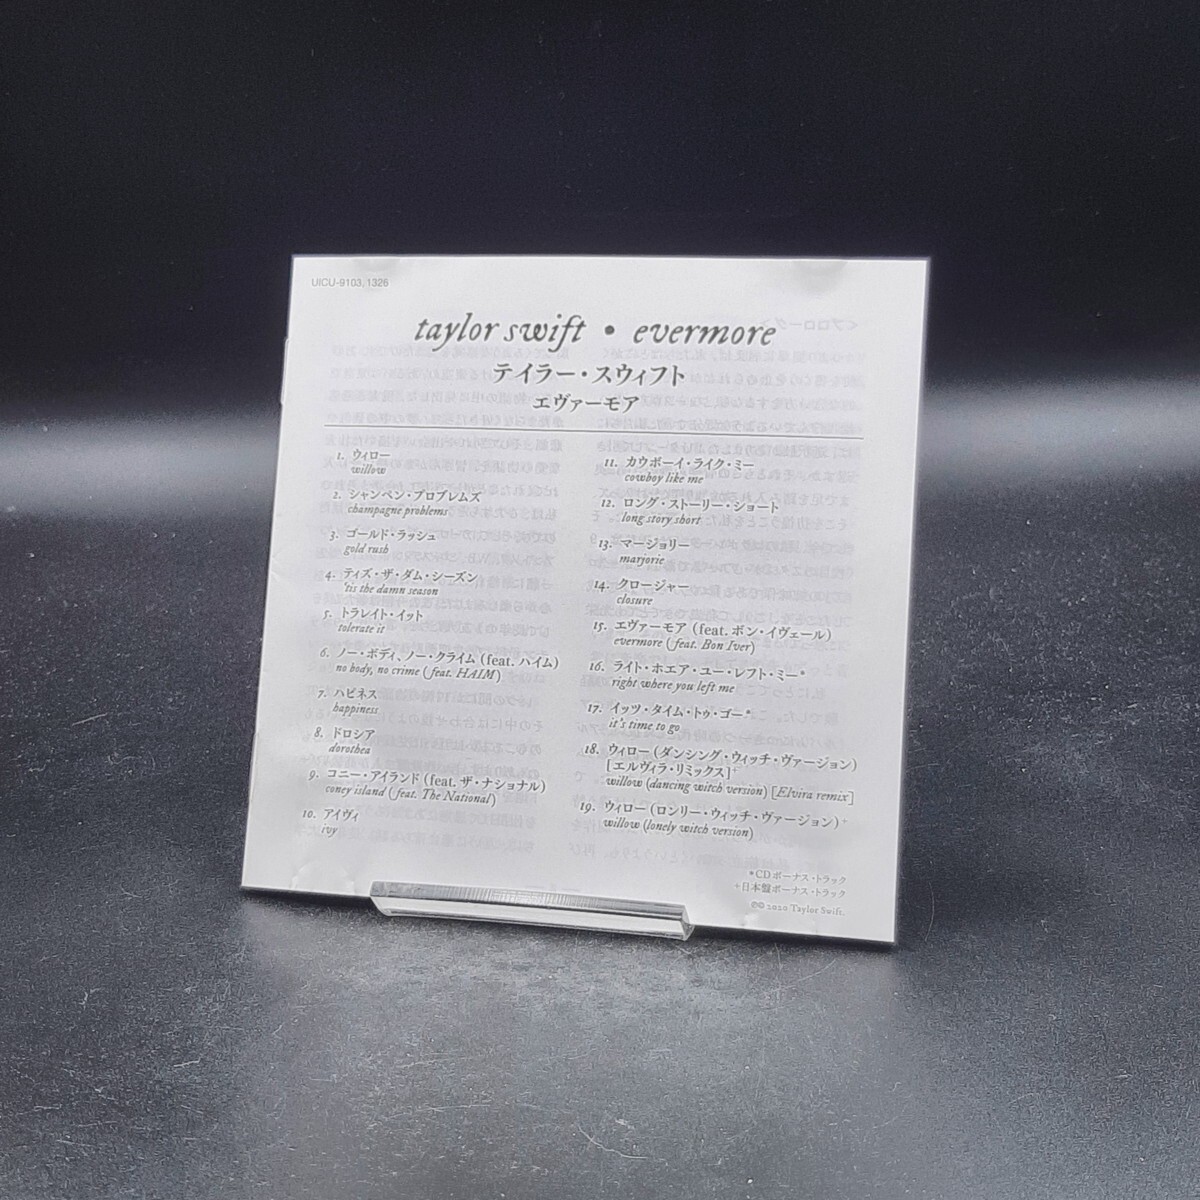 UICU-9103, 1326
taylor swift • evermore
テイラー・スウィフト
エヴァーモア
1. ウィロー
willow
2. シャンペン・プロブレムズ
champagne problems
3. ゴールド・ラッシュ
gold rush
4. ティズ・ザ・ダム・シーズン
'tis the damn season
5. トラレイト・イット
tolerate it
6. ノー・ボディ、ノー・クライム (feat. ハイム)
no body, no crime (feat. HAIM)
7. ハピネス
happiness
8. ドロシア
dorothea
9. コニー・アイランド (feat. ザ・ナショナル)
coney island (feat. The National)
10. アイヴィ
ivy
11. カウボーイ・ライク・ミー
cowboy like me
12. ロング・ストーリー・ショート
long story short
13. マージョリー
marjorie
14. クロージャー
closure
15. エヴァーモア (feat. ボン・イヴェール)
evermore (feat. Bon Iver)
16. ライト・ホエア・ユー・レフト・ミー*
right where you left me
17. イッツ・タイム・トゥ・ゴー*
it's time to go
18. ウィロー (ダンシング・ウィッチ・ヴァージョン)
[エルヴィラ・リミックス]+
willow (dancing witch version) [Elvira remix]
19. ウィロー (ロンリー・ウィッチ・ヴァージョン)+
willow (lonely witch version)
*CDボーナス・トラック
+日本盤ボーナス・トラック
℗© 2020 Taylor Swift.